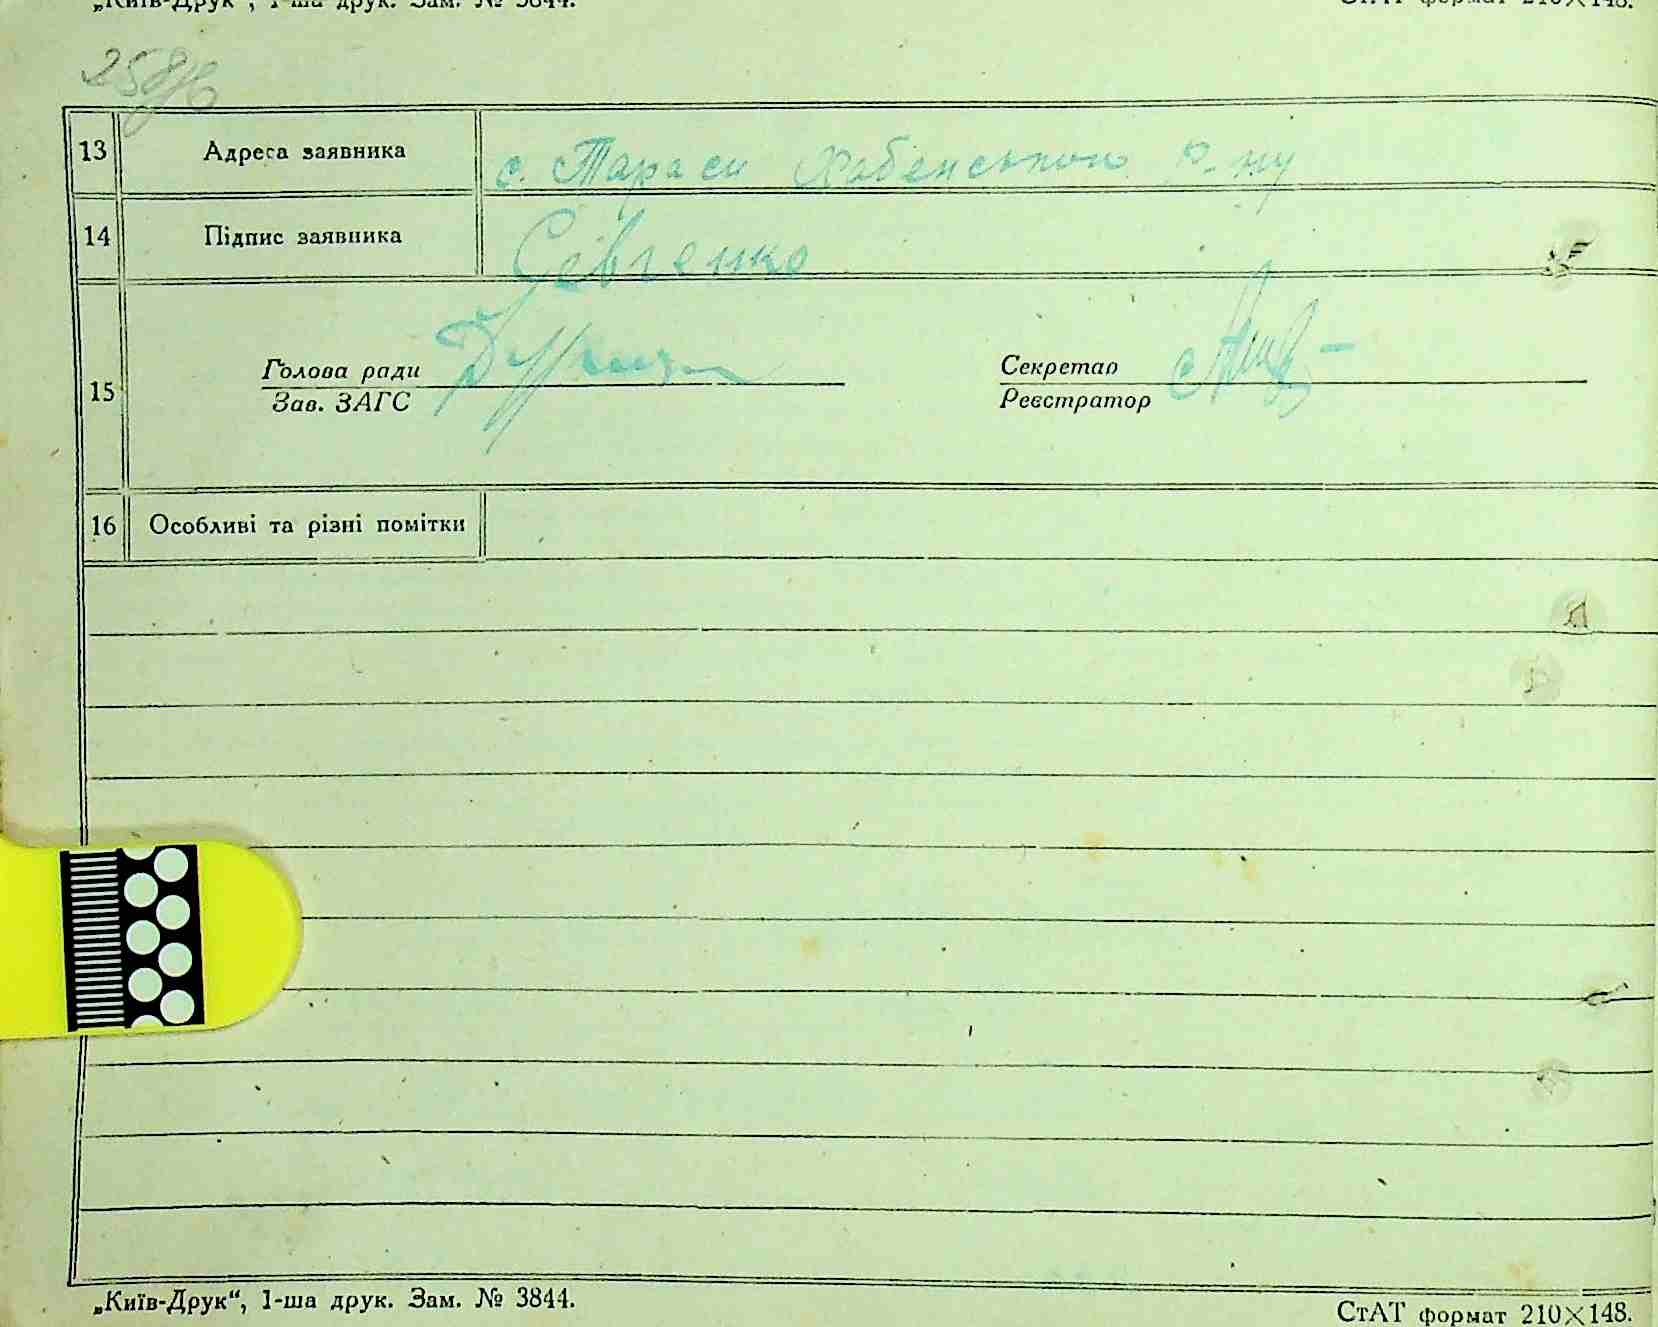 „Київ-Друк", 1-ша друк. Зам. № 3844.
СтАТ формат 210×148.
13 Адреса заявника с. Тараси Хабенського р-ну
14 Підпис заявника Севченко
Голова ради
Секретар
15
Зав. ЗАГС
Реєстратор
16 Особливі та різні помітки
„Київ-Друк“, 1-ша друк. Зам. № 3844.
СтАТ формат 210×148.